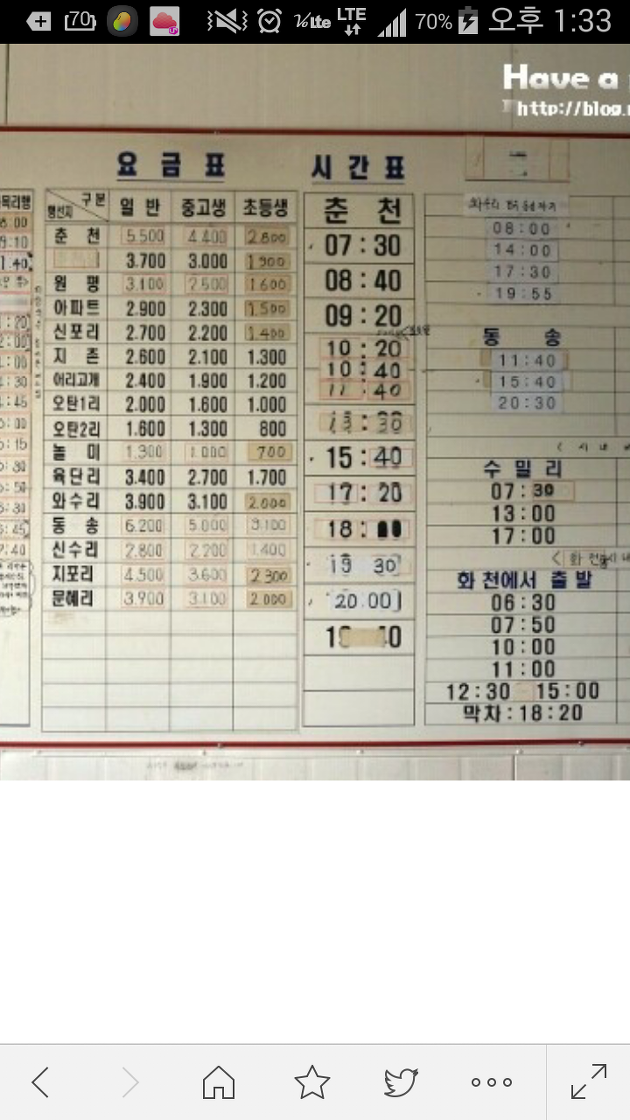 70 70% 오후 1:33
Have a
http://blog.
요금표
구분 행선지 일반 중고생 초등생
춘천 5.500 4.400 2.800
3.700 3.000 1900
원평 3.100 2.500 1600
아파트 2.900 2.300 1.500
신포리 2.700 2.200 1.400
지촌 2.600 2.100 1.300
어리고개 2.400 1.900 1.200
오탄1리 2.000 1.600 1.000
오탄2리 1.600 1.300 800
놀미 1.300 1.000 700
육단리 3.400 2.700 1.700
와수리 3.900 3.100 2.000
동송 6.200 5.000 3.100
신수리 2.800 2.200 1.400
지포리 4.500 3.600 2300
문혜리 3.900 3.100 2.000
시간표
춘천
07:30
08:40
09:20
10:20
10:40
11:40
13:30
15:40
17:20
18:
19 30
20.00
08:00
14:00
17:30
19:55
동송
11:40
15:40
20:30
수밀리
07:30
13:00
17:00
화천에서 출발
06:30
07:50
10:00
11:00
12:30 15:00
막차:18:20